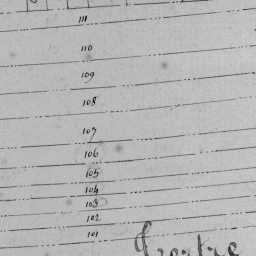 111
110
109
108
107
106
105
104
103
102
101